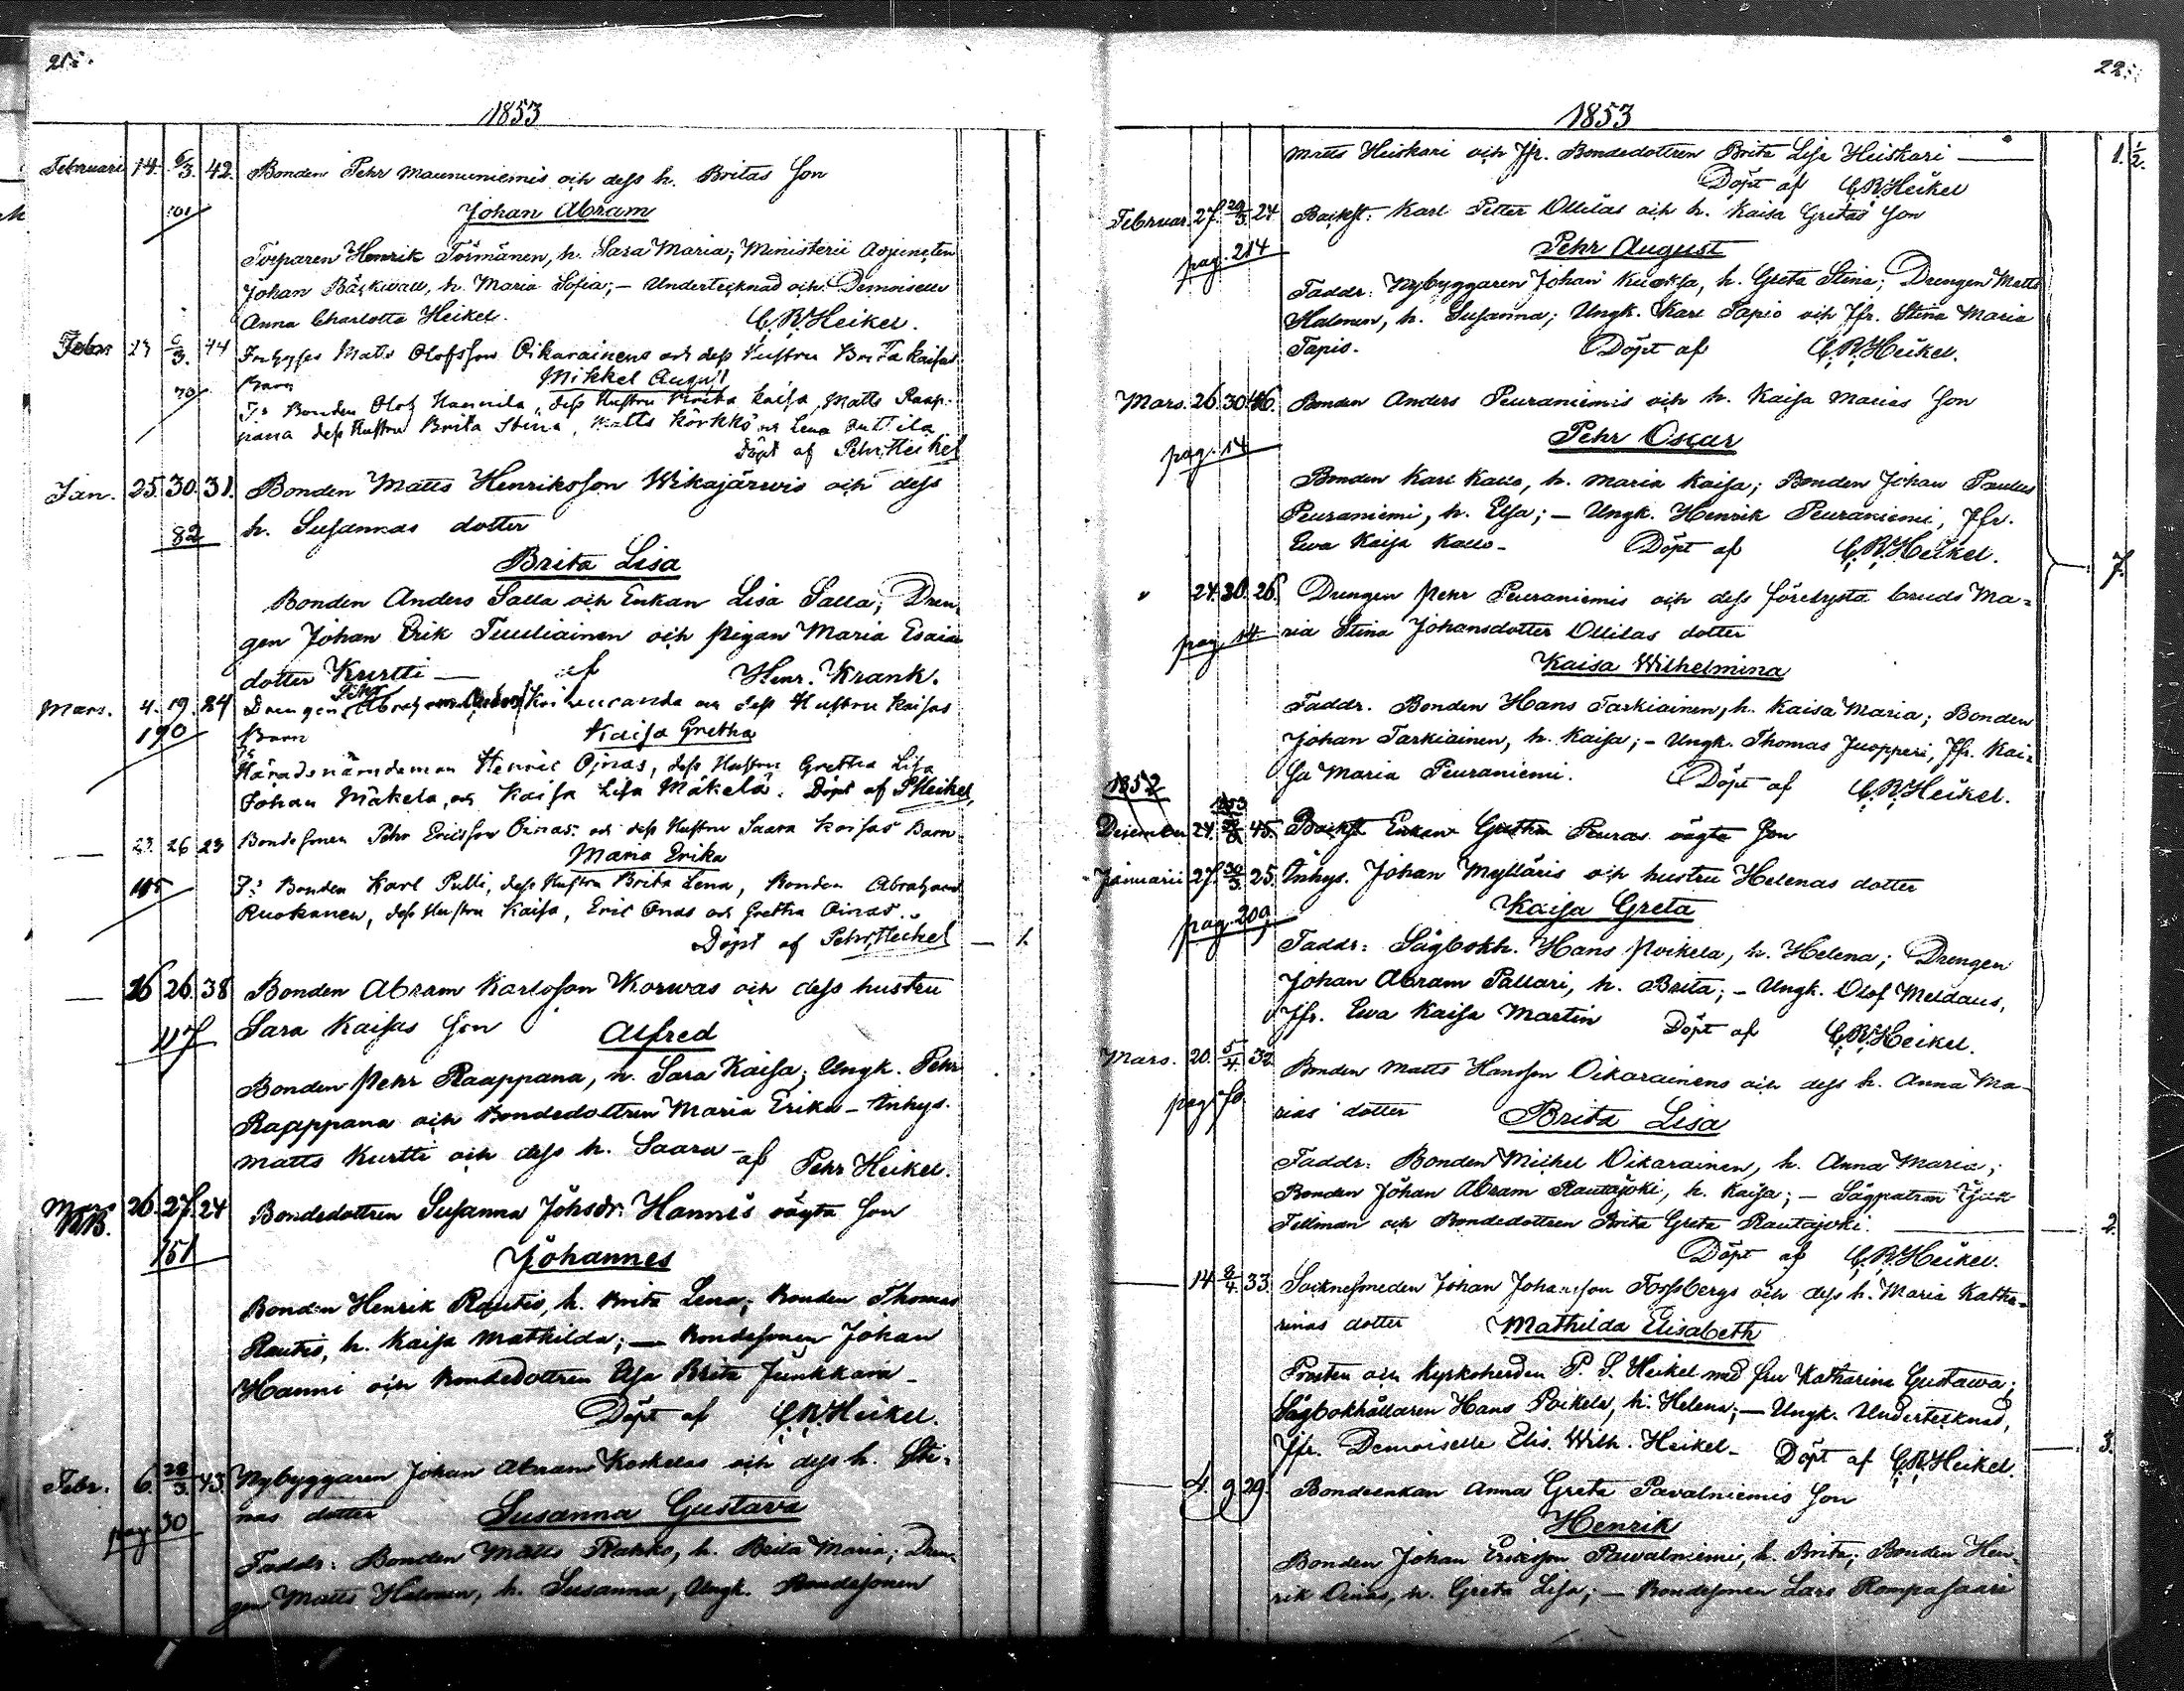 21.
1853
Februari 14. 6/3. 42. Bonden Pehr Maununiemis och dess h. Britas Son
101
Johan Abram
Torparen Henrik Törmänen, h. Sara Maria; Ministerii Adjuncten
Johan Bäckwall, h. Maria Sofia; – Undertecknad och Demoiselle
Anna Charlotta Heikel. C.R. Heikel.
Febr. 6/3. 44 Matts Olofsson Oikarainens och dess Hustru Brita Kaisas
70 Barn Mikkel August
Bonden Olof Hannila, dess Hustru Brita Kaisa, Matts Raap-
pana dess Hustru Brita Stina, Matts Körkkö och Lena
Döpt af Pehr Heikel
Jan. 25. 30. 31. Bonden Matts Henriksson Wikajärwis och dess
82 h. Susannas dotter
Brita Lisa
Bonden Anders Salla och Enkan Lisa Salla; Dren-
gen Johan Erik Tuuliainen och pigan Maria Esaias
dotter Kurtti — af Henr. Krank.
Mars. 4. 19. 24 Drengen Abraham och dess Hustru Kaisas
190 Barn Kaisa Gretha
Häradsnämdeman Henric Ojnas, dess Hustru Gretha Lisa
Johan Mäkelä, och Kaisa Lisa Mäkelä. Döpt af P Heikel,
— 23. 26 23 Bondesonen Pehr Ericsson Oinas och dess Hustru Saara Kaisas Barn
Maria Erika
115 Bonden Karl Pulli, dess Hustru Brita Lena, Bonden Abraham
Ruokanen, dess Hustru Kaisa, Eric Onas och Gretha Oinas.
Döpt af Pehr Heikel — 1.
— 16 26. 38 Bonden Abram Karlsson Korwas och dess hustru
117 Sara Kaisas Son Alfred
Bonden Pehr Raappana, h. Sara Kaisa; Ungk. Pehr
Raappana och Bondedottren Maria Erika – Inhys.
Matts Kurtti och dess h. Saara – af Pehr Heikel.
Mars 26. 27. 24 Bondedottren Susanna Johsdr. Hannis oägta Son
NB.
151
Johannes
Bonden Henrik Rautio, h. Brita Lena; Bonden Thomas
Rautio, h. Kaisa Mathilda; — Bondesonen Johan
Hanni och Bondedottren Elsa Brita Junkkari –
Döpt af C.R. Heikel.
Febr. 6. 28/3. 43. Nybyggaren Johan Abram Koskelas och dess h. Sti-
pag 30 nas dotter Susanna Gustava
Faddr: Bonden Matts Rakko, h. Brita Maria; Dren-
gen Matts Halonen, h. Susanna, Ungk. Bondesonen
22.
1853
Matts Heiskari och Jfr. Bondedottren Brita Lisa Heiskari — 1. 1/2.
Döpt af C.R. Heikel
Februar. 27. 29/3 24 Backst: Karl Petter Ollilas och h. Kaisa Gretas Son
pag. 214 Pehr August
Faddr: Nybyggaren Johan Kuoksa, h. Greta Stina; Drengen Matts
Halonen, h. Susanna; Ungk. Karl Tapio och Jfr. Stina Maria
Tapio. Döpt af C.R. Heikel.
Mars. 26. 30. 46. Bonden Anders Peuraniemis och h. Kaisa Marias Son
pag. 14 Pehr Oscar
Bonden Karl Kallo, h. Maria Kaisa; Bonden Johan Paulus
Peuraniemi, h. Elsa; – Ungk. Henrik Peuraniemi, Jfr.
Ewa Kaisa Kallo – Döpt af C.R. Heikel. 7.
" 24. 30. 26. Drengen Pehr Peuraniemis och dess förelysta bruds Ma-
pag. 14 ria Stina Johansdotter Ollilas dotter
Kaisa Wilhelmina
Faddr. Bonden Hans Tarkiainen, h. Kaisa Maria; Bonden
Johan Tarkiainen, h. Kaisa; – Ungk. Thomas Juopperi, Jfr. Kai-
sa Maria Peuraniemi. Döpt af C.R. Heikel.
1852
December 24. 45. Backst Enkan Gretha Peuras oägta Son
Januarii 27. 30/3. 25. Inhys. Johan Mylläris och hustru Helenas dotter
pag. 209 Kaisa Greta
Faddr: Sågbokh. Hans Poikela, h. Helena; Drengen
Johan Abram Pallari, h. Brita; – Ungk. Olof Meldaus,
Jfr. Ewa Kaisa Martin Döpt af C.R. Heikel.
Mars. 20. 5/4. 32 Bonden Matts Hansson Oikarainens och dess h. Anna Ma-
pag. 70. rias dotter Brita Lisa
Faddr: Bonden Michel Oikarainen, h. Anna Maria;
Bonden Johan Abram Rautajoki, h. Kaisa; – Sågpatron
Fellman och Bondedottren Brita Greta Rautajoki. — 2.
Döpt af C.R. Heikel.
— 14 8/4. 33. Socknesmeden Johan Johansson Forssbergs och dess h. Maria Katha-
rinas dotter Mathilda Elisabeth
Prosten och Kyrkoherden P. S. Heikel med fru Katharina Gustawa;
Sågbokhållaren Hans Poikela, h. Helena; — Ungk. Undertecknad,
Jfr. Demoiselle Elis. Wilh. Heikel – Döpt af C.R. Heikel. — 3.
— 4. 9. 29. Bondeenkan Anna Greta Pavalniemis Son
Henrik
Bonden Johan Ericsson Pawalniemi, h. Brita; Bonden Hen-
rik Oinas, h. Greta Lisa; — Bondesonen Lars Rompasaari